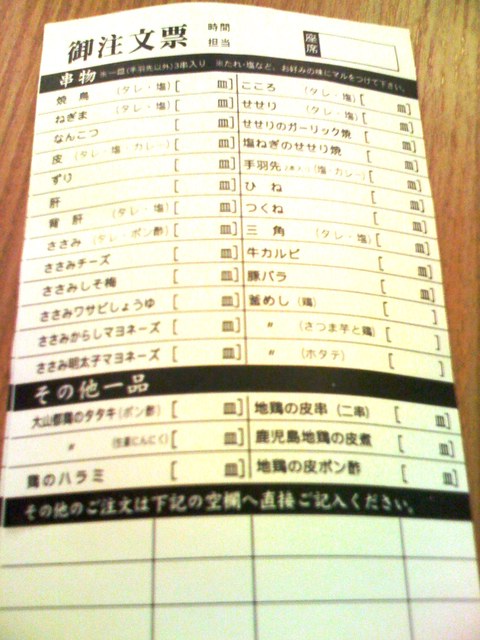 御注文票 時間
担当 座席
串物 ※一皿(手羽先以外)3串入り ※たれ・塩など、お好みの味にマルをつけて下さい。
焼鳥 (タレ・塩) [ 皿]
ねぎま (タレ・塩) [ 皿]
なんこつ [ 皿]
皮 (タレ・塩・カレー) [ 皿]
ずり [ 皿]
肝 [ 皿]
背肝 (タレ・塩) [ 皿]
ささみ (タレ・ポン酢) [ 皿]
ささみチーズ [ 皿]
ささみしそ梅 [ 皿]
ささみワサビしょうゆ [ 皿]
ささみからしマヨネーズ [ 皿]
ささみ明太子マヨネーズ [ 皿]
こころ (タレ・塩) [ 皿]
せせり (タレ・塩) [ 皿]
せせりのガーリック焼 [ 皿]
塩ねぎのせせり焼 [ 皿]
手羽先 (塩・カレー) [ 皿]
ひね [ 皿]
つくね [ 皿]
三角 (タレ・塩) [ 皿]
牛カルビ [ 皿]
豚バラ [ 皿]
釜めし (鶏) [ ]
〃 (さつま芋と鶏) [ ]
〃 (ホタテ) [ ]
その他一品
大山都鶏のタタキ(ポン酢) [ 皿]
〃 (生姜にんにく) [ 皿]
鶏のハラミ [ 皿]
地鶏の皮串 (二串) [ 皿]
鹿児島地鶏の皮煮 [ 皿]
地鶏の皮ポン酢 [ 皿]
その他のご注文は下記の空欄へ直接ご記入ください。